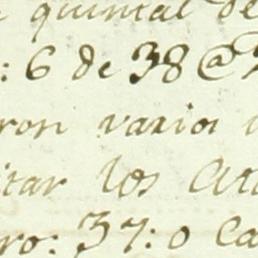 quintal de
: 6 de 38 @
ron varios
itar los
ro: 37: 0 Ca